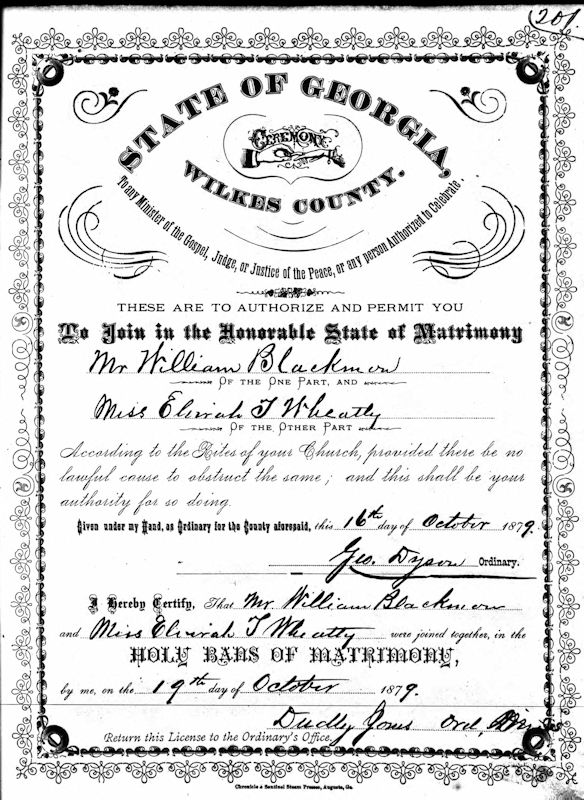 201
STATE OF GEORGIA,
CEREMONY
WILKES COUNTY.
To any Minister of the Gospel, Judge, or Justice of the Peace, or any person Authorized to Celebrate,
THESE ARE TO AUTHORIZE AND PERMIT YOU
To Join in the Honorable State of Matrimony
Mr William Blackmon
OF THE ONE PART, AND
Miss Elvirah T Wheatly
OF THE OTHER PART
According to the Rites of your Church, provided there be no
lawful cause to obstruct the same; and this shall be your
authority for so doing.
Given under my Hand, as Ordinary for the County aforesaid, this 16th day of October 1879.
Geo. Dyson Ordinary.
I Hereby Certify, That Mr. William Blackmon
and Miss Elvirah T Wheatly were joined together, in the
HOLY BANS OF MATRIMONY,
by me, on the 19th day of October 1879.
Dudley Jones Ord,
Return this License to the Ordinary's Office.
Chronicle & Sentinel Steam Presses, Augusta, Ga.